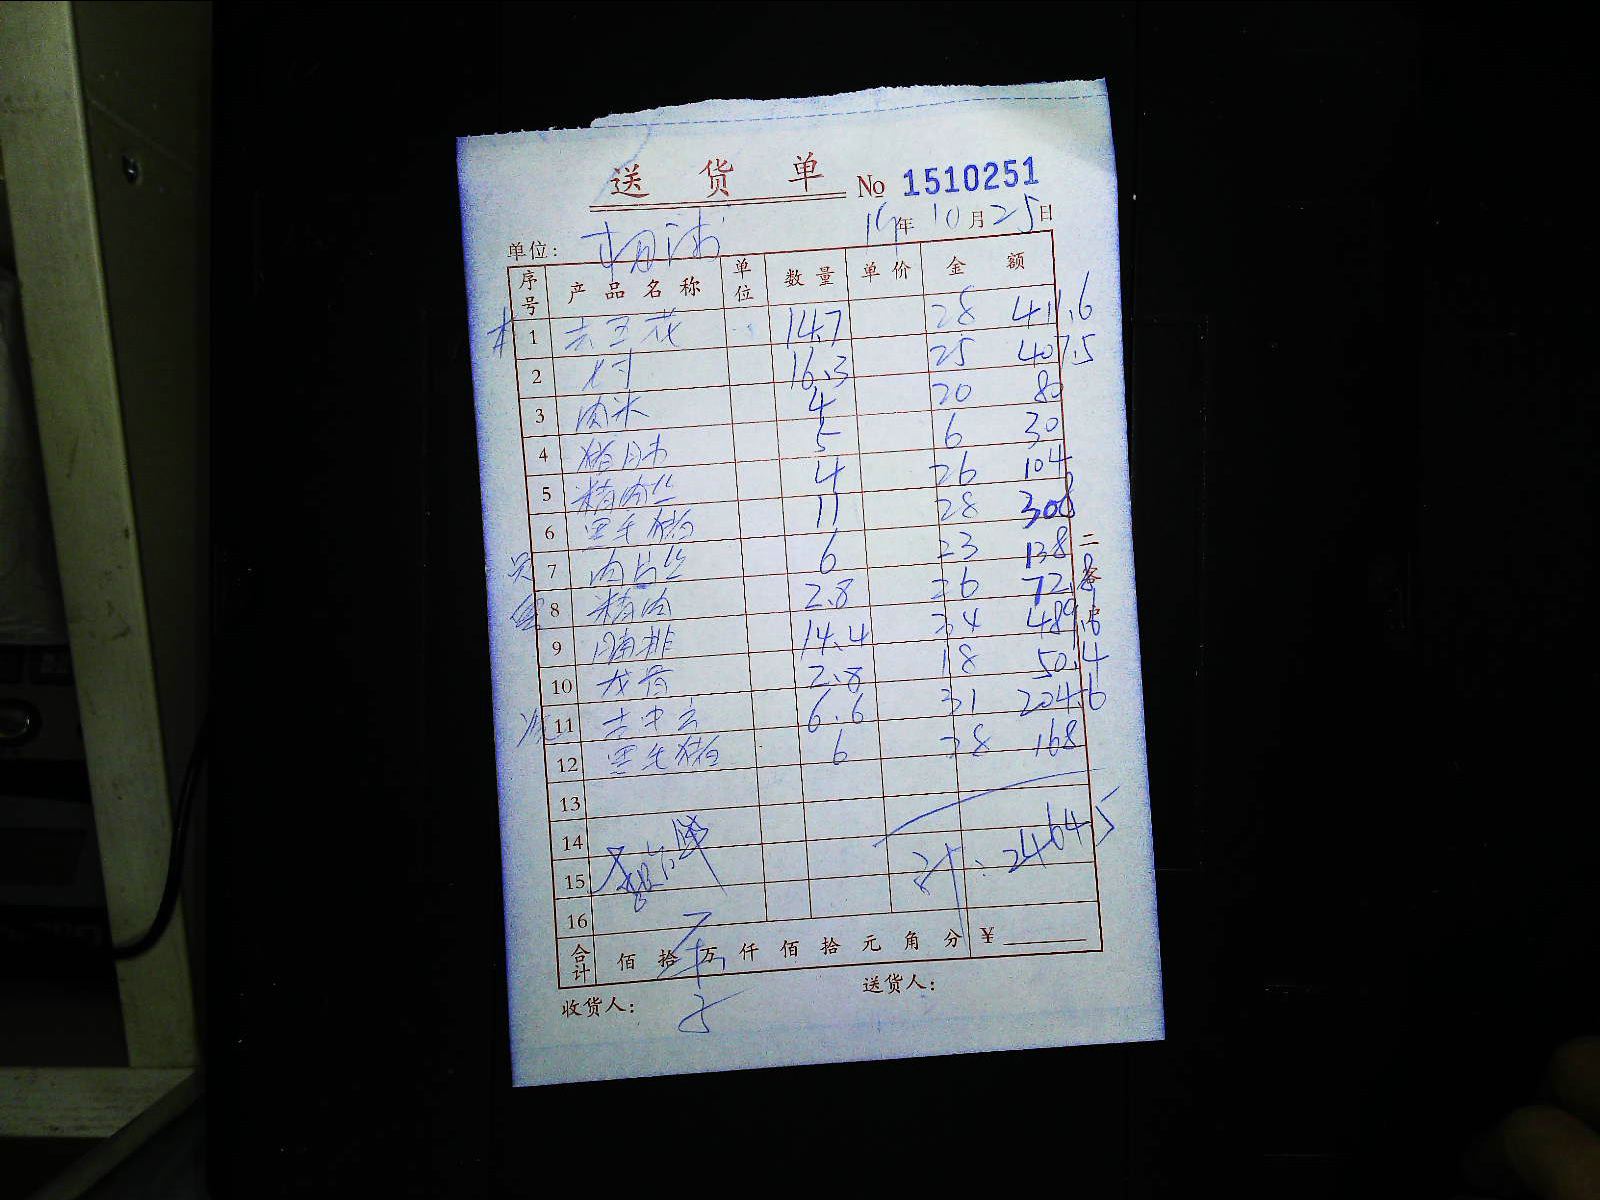 送货单 No 1510251
单位: 杨浦 19年10月25日
序号 产品名称 单位 数量 单价 金额
1 去五花 14.7 28 411.6
2 16.3 25 407.5
3 肉米 4 20 80
4 猪肚 5 6 30
5 精肉丝 4 26 104
6 黑毛猪 11 28 308
7 肉片丝 6 23 138
8 精肉 2.8 26 72.8
9 脯排 14.4 34 489.6
10 龙骨 2.8 18 50.4
11 6.6 31 204.6
12 黑毛猪 6 28 168
13
14
15 计: 2464.5
16
合计 佰拾万仟佰拾元角分 ¥
收货人: 送货人:
二客户